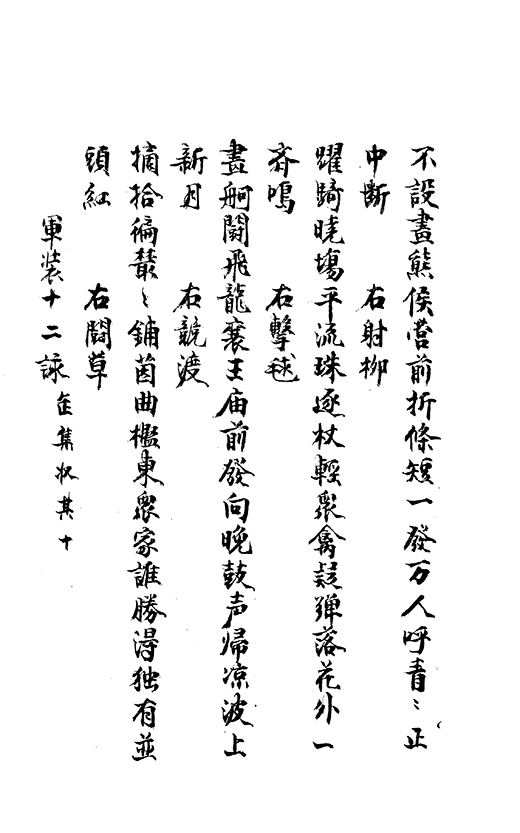 不設畫熊侯當前折條短一發万人呼青〻正
中斷　右射柳
躍騎曉場平流珠逐杖輕衆禽疑彈落花外一
齐鳴　右擊毬
畫舸鬪飛龍襄王庙前發向晚鼓声帰凉波上
新月　右競渡
摘拾徧叢〻鋪茵曲檻東衆家誰勝得独有並
頭紅　右鬪草
軍装十二詠
集 其十